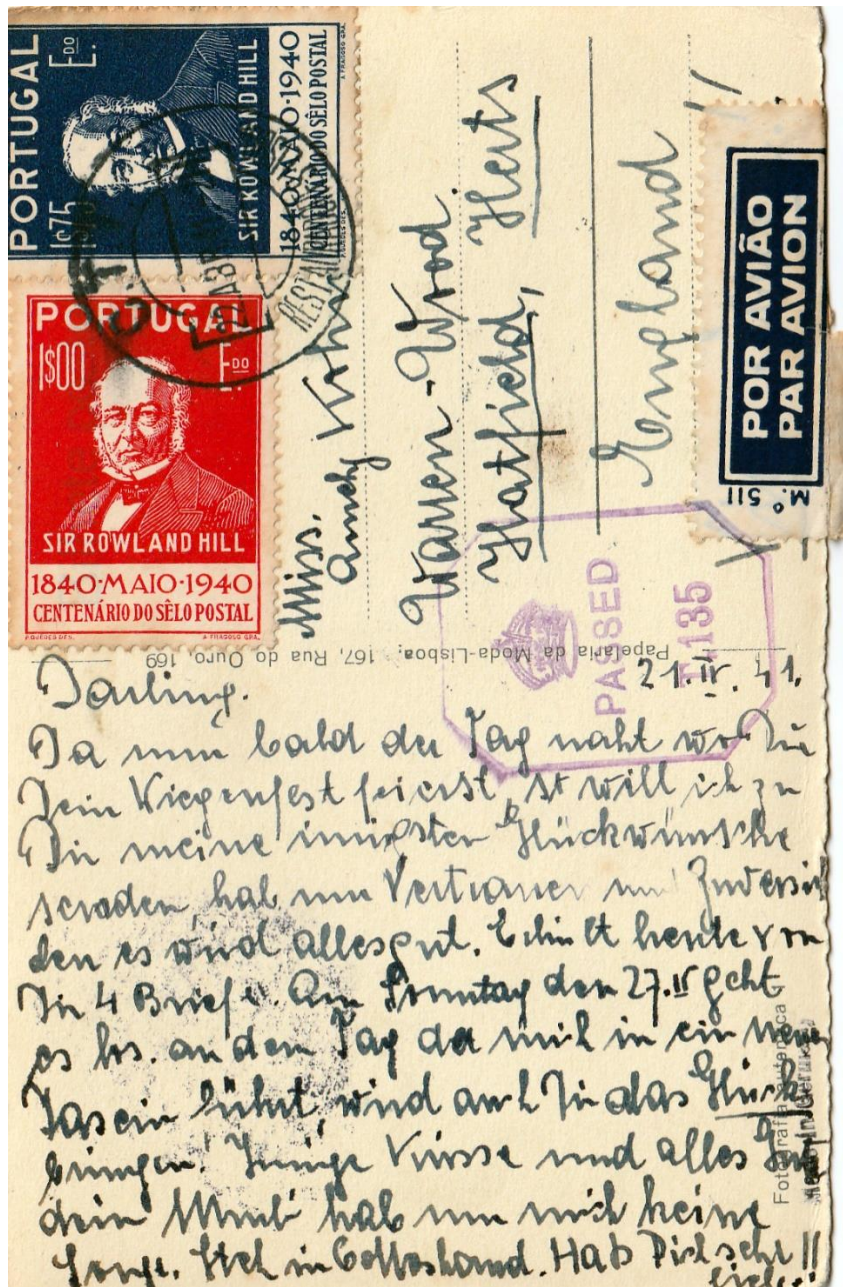 PORTUGAL
1$75
E.DO
SIR ROWLAND HILL
1840·MAIO·1940
CENTENÁRIO DO SÊLO POSTAL
PORTUGAL
1$00
E.DO
SIR ROWLAND HILL
1840·MAIO·1940
CENTENÁRIO DO SÊLO POSTAL
C.T.T.
Miss.
Warren-Wood.
Hatfield, Herts
England
POR AVIÃO
PAR AVION
M.º 511
PASSED
135
Papelaria da Moda-Lisboa: 167, Rua do Ouro, 169
21.IV.41.
Darling.
Da nun bald der Tag naht wo Du
Dein Wiegenfest feierst, so will ich zu
Dir meine innigsten Glückwünsche
hab nun Vertrauen und
den es wird alles gut. Erhielt heute von
Dir 4 Briefe. Am Sonntag den 27.IV geht
es los. an dem Tag der mich in ein
Dasein führt, wird auch Dir das Glück
bringen! Innige Küsse und alles
dein hab um mich keine
Sorge. Steh in Gotteshand. Hab Dich sehr
lieb!!